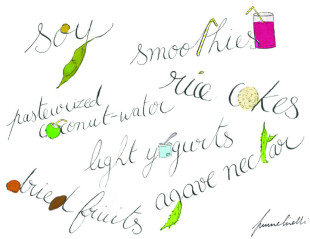 soy
smoothies
pasteurized
coconut-water
rice cakes
light yogurts
agave nectar
dried fruits